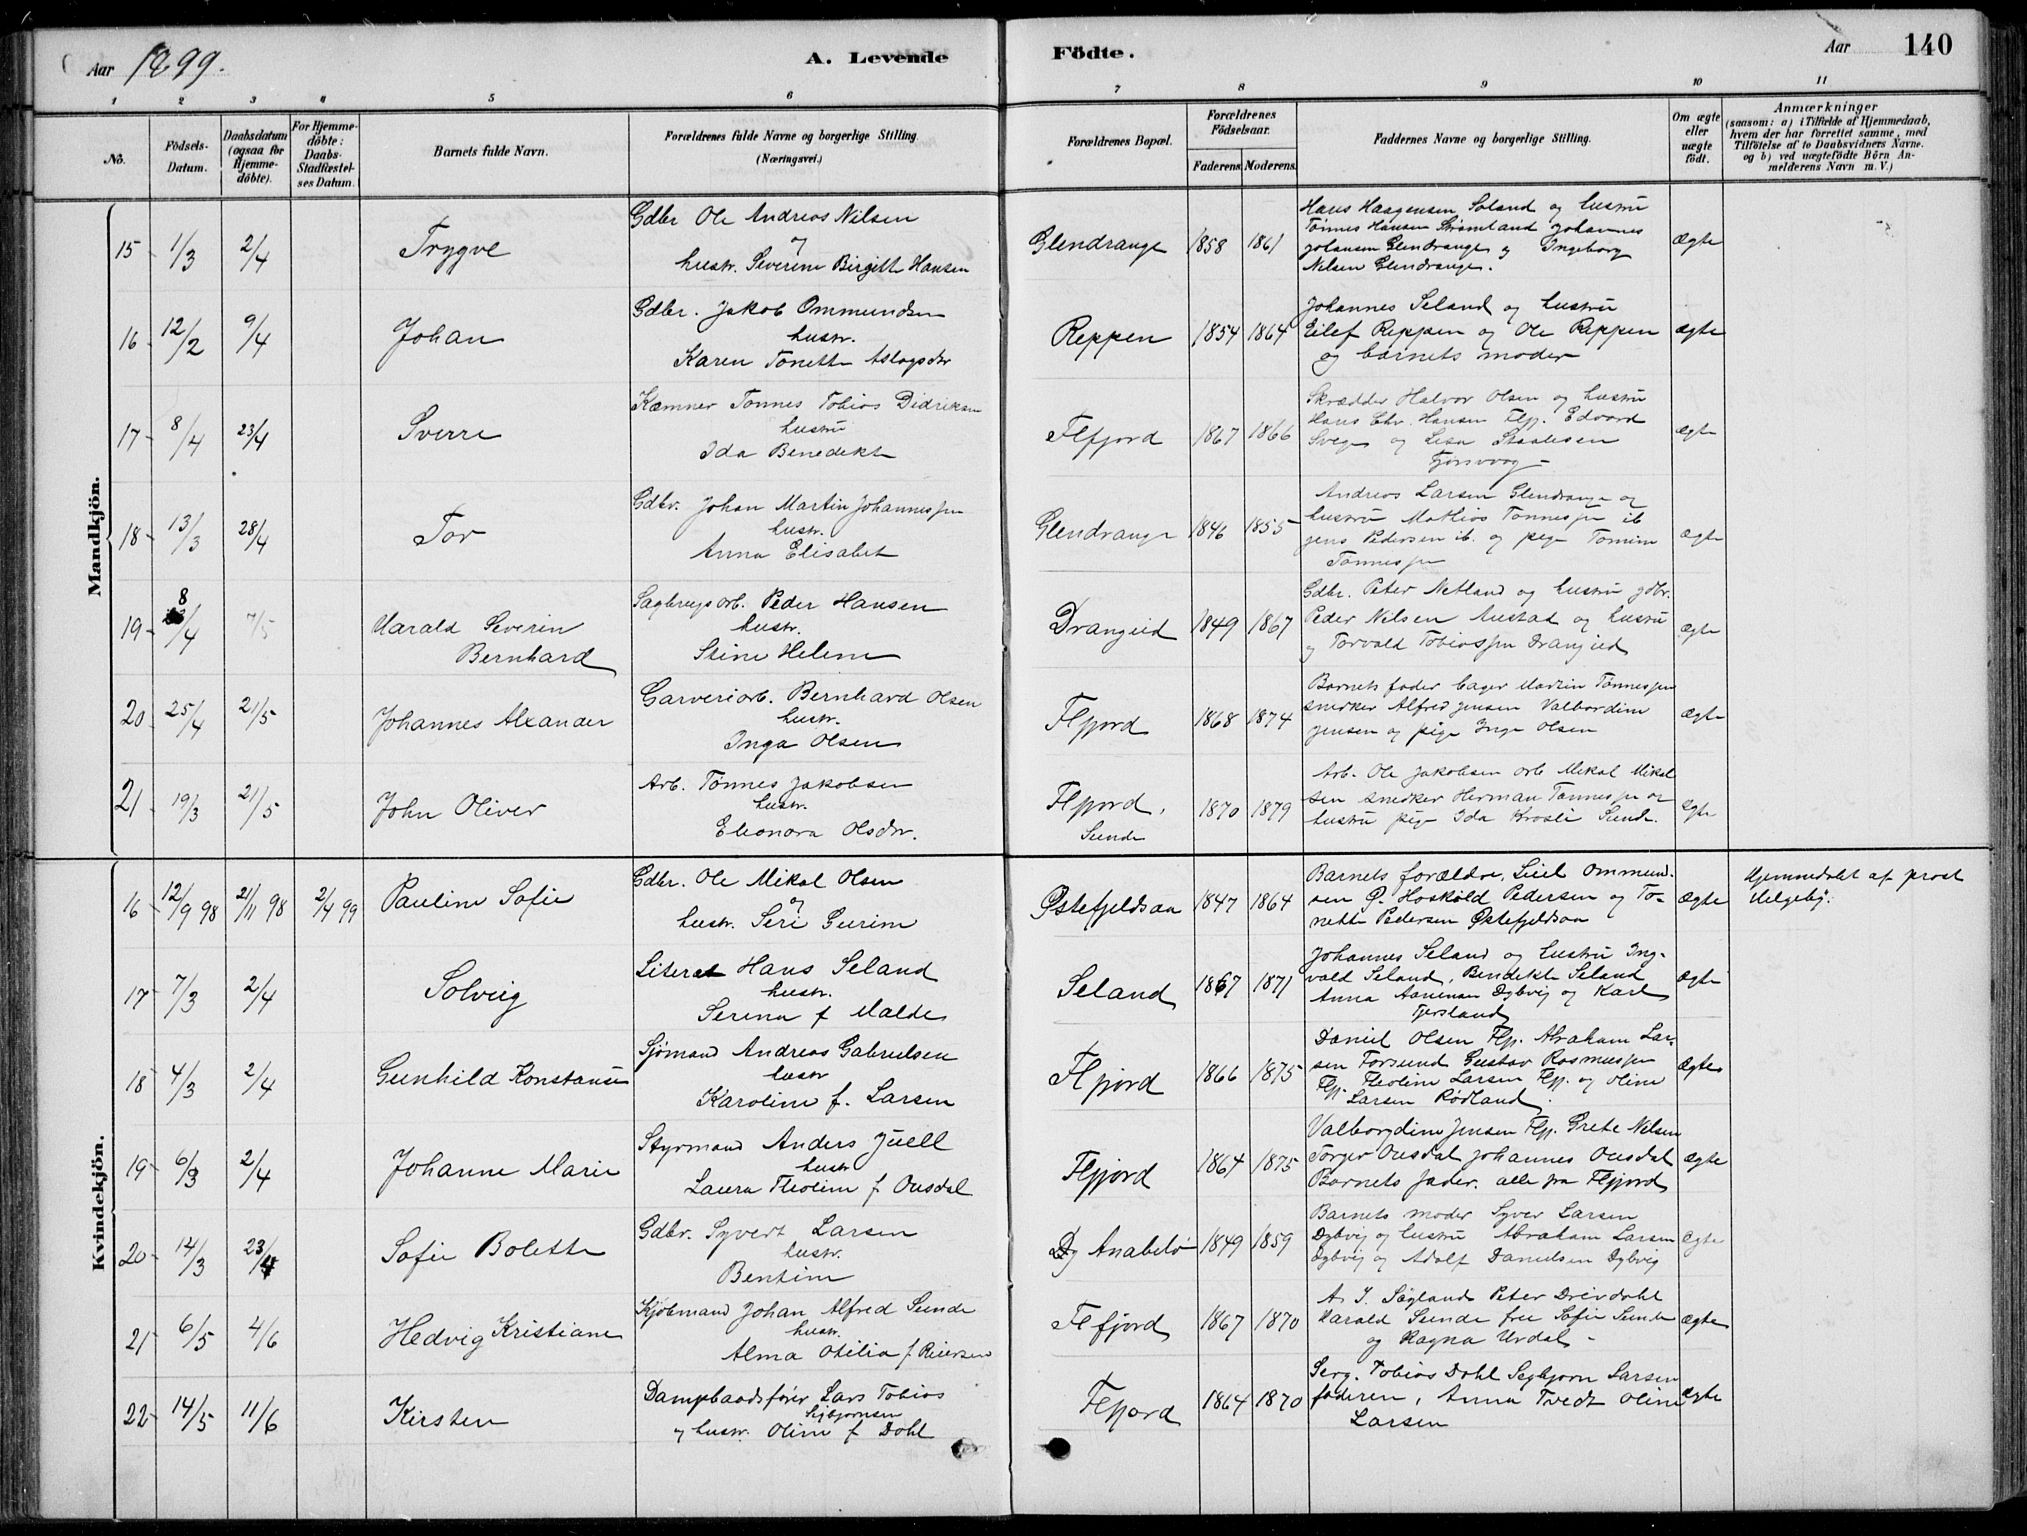 Aar 1899.
A. Levende
Födte.
Aar
140
1 2 3 4 5 6 7 8 9 10 11
No.
Födsels-Datum.
Daabsdatum (ogsaa for Hjemme-döbte).
For Hjemme-döbte: Daabs-Stadfæstel-ses Datum.
Barnets fulde Navn.
Forældrenes fulde Navne og borgerlige Stilling.
(Næringsvei.)
Forældrenes Bopæl.
Forældrenes Födselsaar.
Faderens. Moderens.
Faddernes Navne og borgerlige Stilling.
Om ægte eller uægte födt.
Anmærkninger
(saasom: a) i Tilfælde af Hjemmedaab,
hvem der har forrettet samme, med
Tilföielse af to Daabsvidners Navne.
og b) ved uægtefödte Börn An-
melderens Navn m. V.)
Mandkjön.
15 1/3 2/4 Trygve
Gdbr Ole Andreas Nilsen
og
hustr. Severine Birgitte Hansen
Glendrange 1858 1861
Hans Haagensen Soland og hustru
Tønnes Hansen Strømland Johannes
Johansen Glendrange og Ingeborg
Nilsen Glendrange.
ægte
16 12/2 9/4 Johan
Gdbr. Jakob Ommundsen
hustr.
Karen Tonette Aslagsdtr
Reppen 1854 1864
Johannes Seland og hustru
Eilef Reppen og Ole Reppen
og barnets moder
ægte
17 8/4 23/4 Sverre
Kæmner Tønnes Tobias Didriksen
hustru
Ida Benedikte
Flfjord 1867 1866
Skrædder Halvor Olsen og hustru
Hans Chr. Hansen Flfj. Edvard
Svege og Lisa Staalesen
Fjørsvaag
ægte
18 13/3 28/4 Tor
Gdbr. Johan Martin Johannessen
hustr.
Anna Elisabet
Glendrange 1846 1855
Andreas Larsen Glendrange og
hustru Mathias Tønnessen ib
Jens Pedersen ib. og pige Tomine
Tønnessen
ægte
19 8/4 7/5 Harald Severin
Bernhard
Sagbrugsarb. Peder Hansen
hustr.
Stine Helene
Drangeid 1849 1867
Gdbr. Peter Netland og hustru gdbr.
Peder Nilsen Austad og hustru
og Torvald Tobiassen Drangeid
ægte
20 25/4 21/5 Johannes Alxander
Garveriarb. Bernhard Olsen
hustr.
Inga Olsen
Flfjord 1868 1874
Barnets fader bager Martin Tønnessen
snedker Alfred Jensen Valbordine
Jensen og pige Inge Olsen
ægte
21 19/3 21/5 John Oliver
Arb. Tønnes Jakobsen
hustr.
Eleonora Olsdtr.
Flfjord,
Sunde
1870 1879
Arb. Ole Jakobsen arb Mikal Mikal
sen snedker Herman Tønnessen og
hustru pige Ida Krosli Sunde.
ægte
Kvindekjön.
16 12/9 98 21/11 98 2/4 99 Pauline Sofie
Gdbr. Ole Mikal Olsen
og
hustr. Seri Gurine
Østefjeldsaa 1847 1864
Barnets forældre, Siel Ommund-
sen Ø. Hoskold Pedersen og To-
nette Pedersen Østefjeldsaa
ægte
Hjemmedøbt af prost
Helgeby.
17 7/3 2/4 Solveig
Literat Hans Seland
hustr.
Serina f Malde
Seland 1867 1871
Johannes Seland og hustru Ing-
vald Seland, Bendikte Seland
Anna Aanensen Dybvig og Karl
Fjersland
ægte
18 4/3 2/4 Gunhild Konstanse
Sjømand Andreas Gabrielsen
hustr
Karoline f. Larsen
Flfjord 1866 1875
Daniel Olsen Flfj. Abraham Lar-
sen Forsund Gustav Rasmussen
Flfj. Theoline Larsen Flfj. og Oline
Larsen Rødland.
ægte
19 6/3 2/4 Johanne Marie
Styrmand Anders Juell
hustr
Laura Theoline f Ousdal
Flfjord 1864 1875
Valborgdine Jensen Flfj. Grete Nilsen
Torger Ousdal Johannes Ousdal
Barnets fader. alle fra Flfjord
ægte
20 14/3 23/4 Sofie Bolette
Gdbr. Syvert Larsen
hustr.
Bentine
Anabelø 1849 1859
Barnets moder Syver Larsen
Dybvig og hustru Abraham Larsen
Dybvig og Adolf Danielsen Dybvig
ægte
21 6/5 4/6 Hedvig Kristiane
Kjøbmand Johan Alfred Sunde
hustr.
Alma Otilia f Reiersen
Flfjord 1867 1870
A. I. Søgland Peter Dreivdahl
Harald Sunde fru Sofie Sunde
og Ragna Urdal
ægte
22 14/5 11/6 Kirsten
Dampbaadsfører Lars Tobias
Sigbjørnsen
og hustr. Oline f Dahl
Flfjord 1864 1870
Serg. Tobias Dahl Segbjørn Larsen
faderen, Anna Tvedt Oline
Larsen
ægte